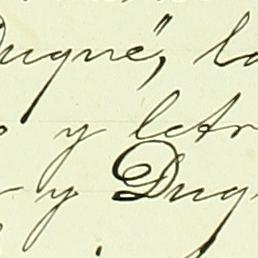 Duqué", la
y letr
y Duq